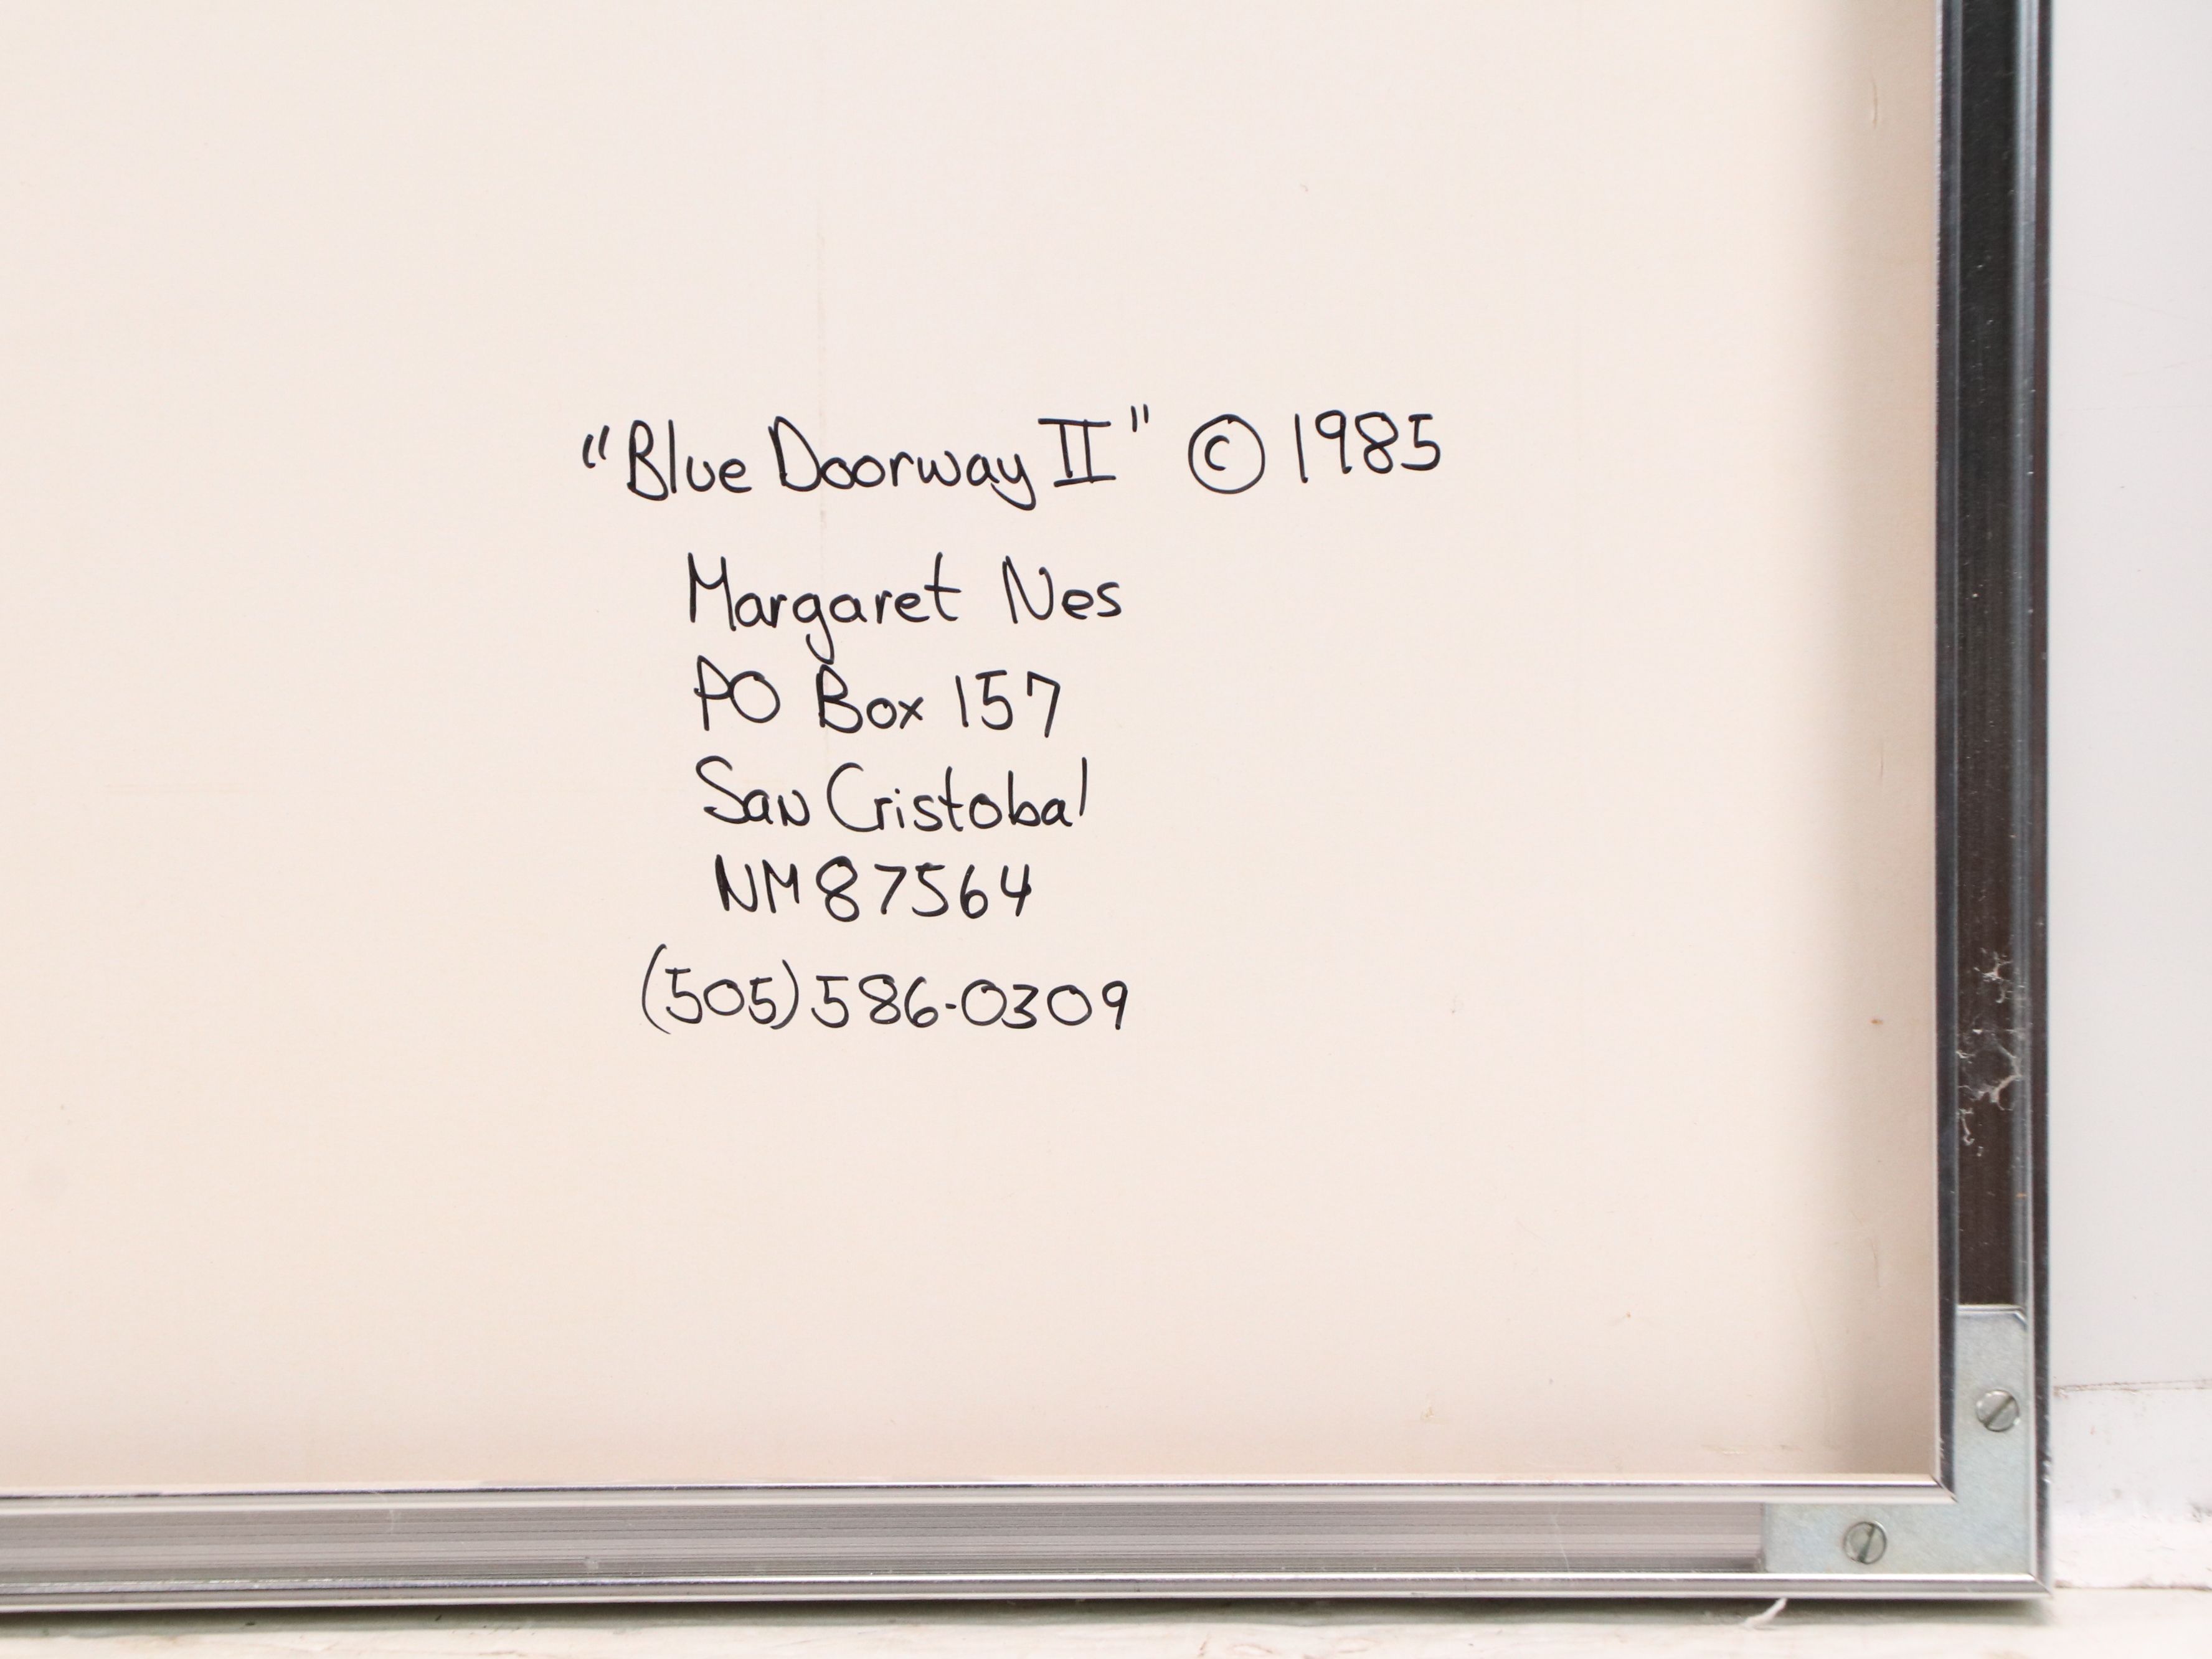 "Blue Doorway II" © 1985
Margaret Nes
PO Box 157
San Cristobal
NM 87564
(505) 586-0309